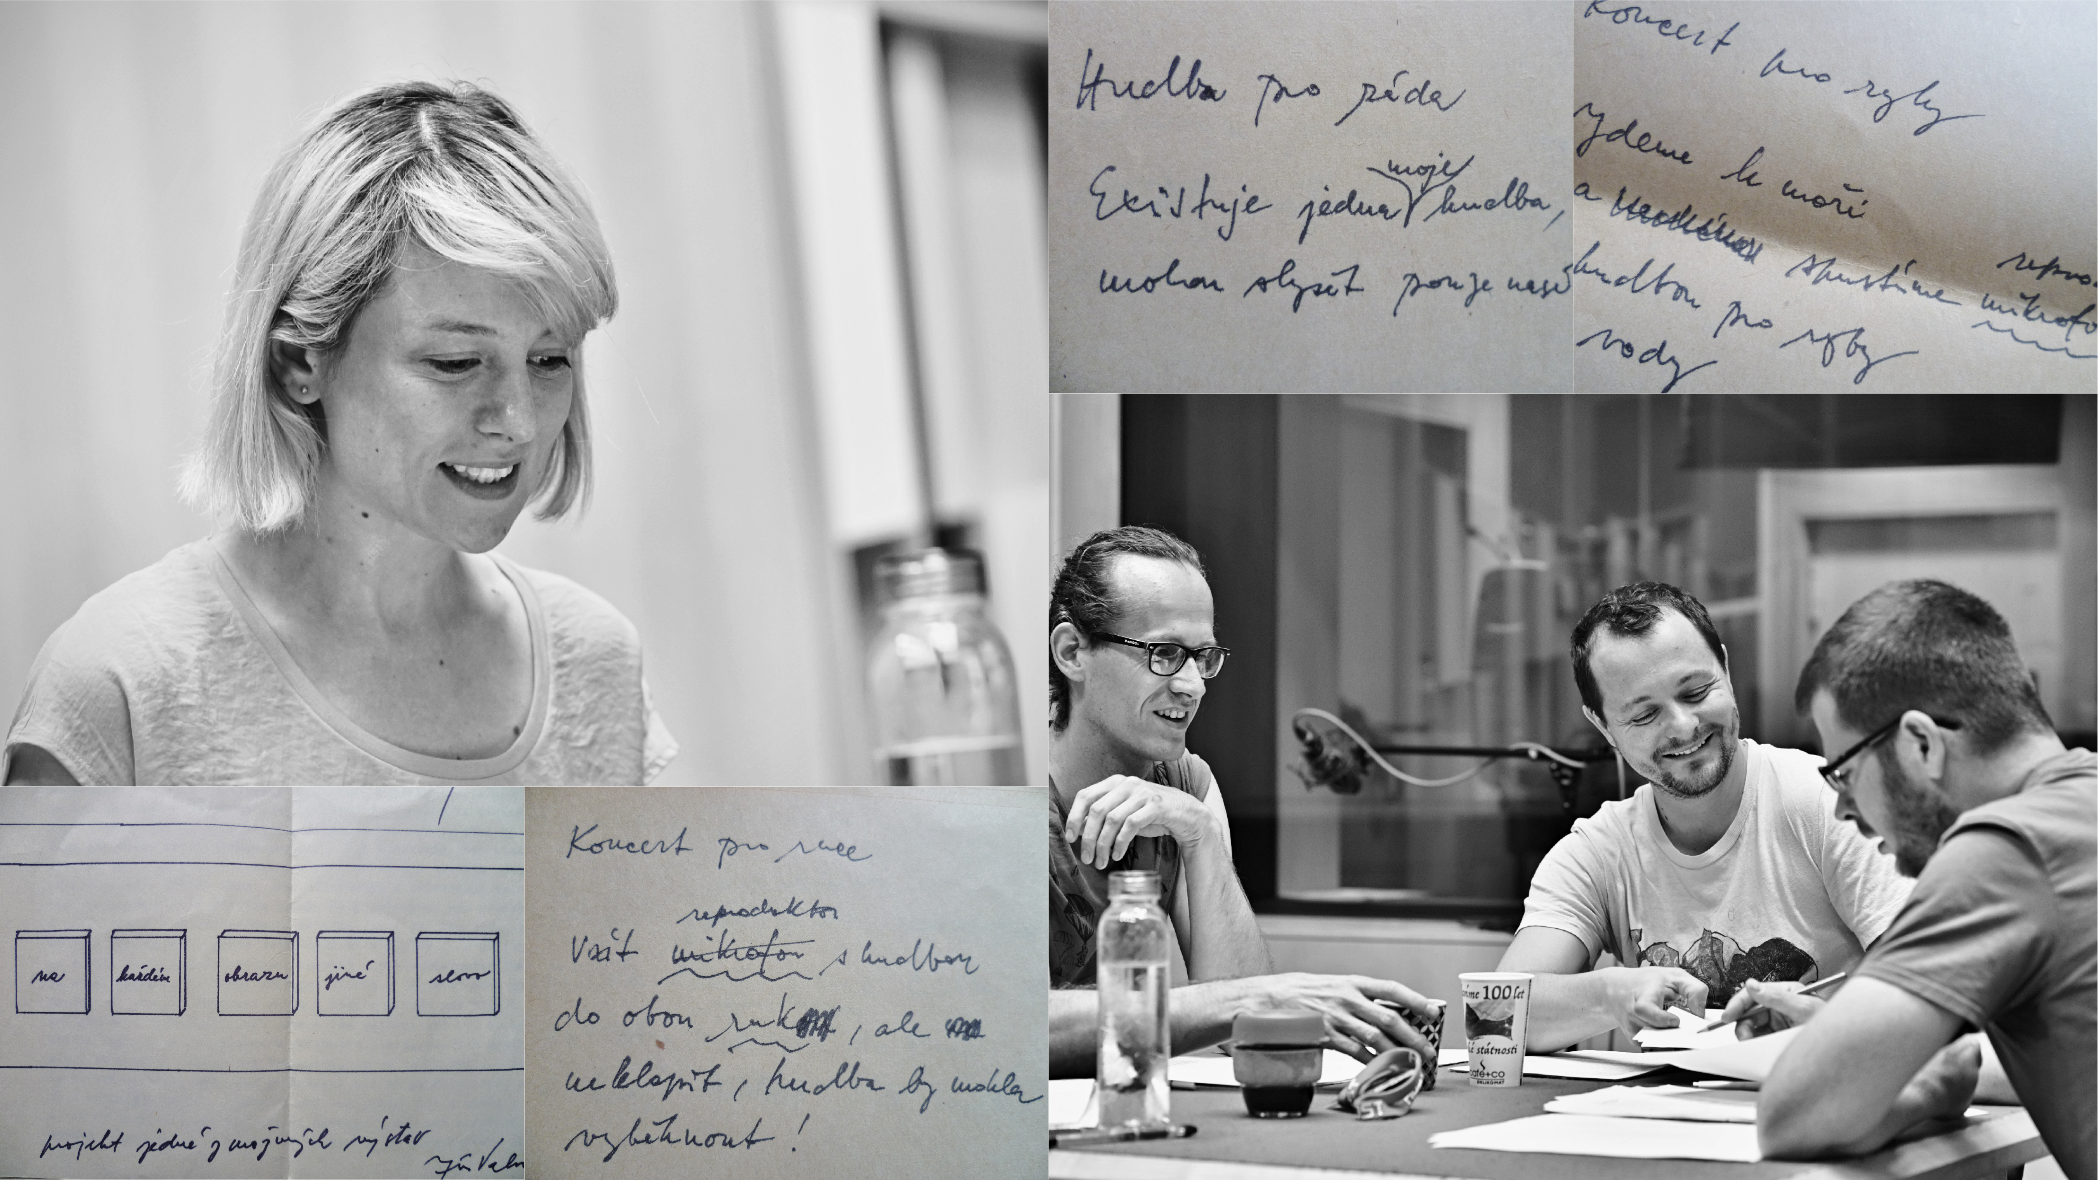 Hudba pro záda
moje
Existuje jedna hudba,
mohou slyšet pouze naše
Koncert pro ryby
Jdeme k moři
a
repro
spustíme mikrofo
hudbou pro ryby
vody
na každém obrazu jiné slovo
projekt jedné z možných výstav
Koncert pro ruce
reproduktor
Vzít mikrofon s hudbou
do obou ruk, ale
neklopit, hudba by mohla
vyběhnout!
100 let
státnosti
café+co